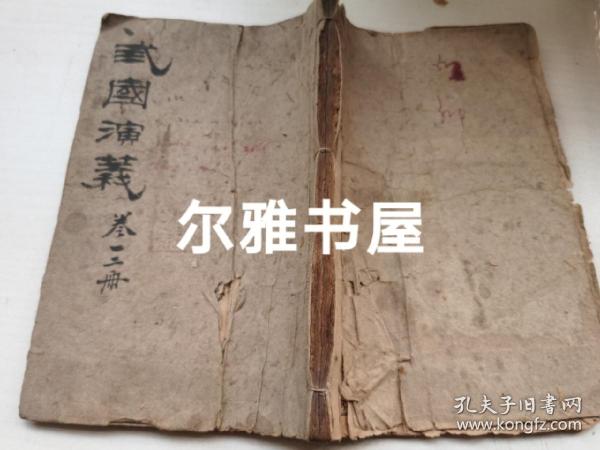 弎國演義
卷一二冊
尔雅书屋
孔夫子旧書网
www.kongfz.com